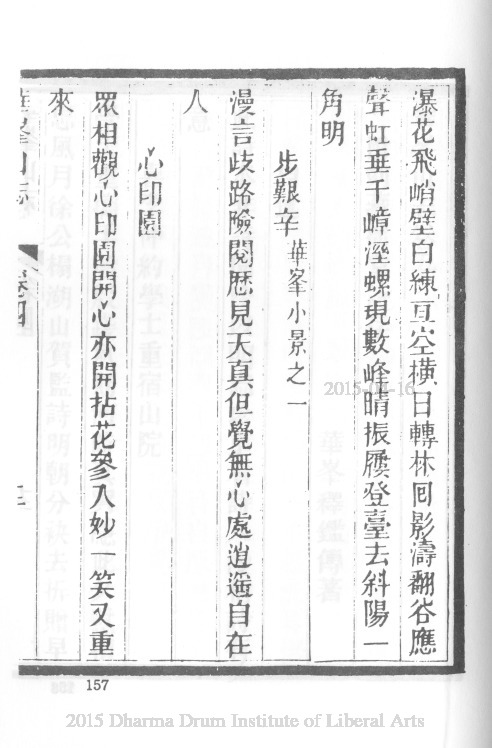 瀑花飛峭壁白練亙空橫日轉林囘影濤翻谷應
聲虹垂千嶂溼螺現數峰晴振屧登臺去斜陽一
角明
步艱辛華峯小景之一
漫言歧路險閱歷見天真但覺無心處逍遙自在
人
心印園
眾相觀心印園開心亦開拈花參入妙一笑又重
來
157
2015-04-16
2015 Dharma Drum Institute of Liberal Arts